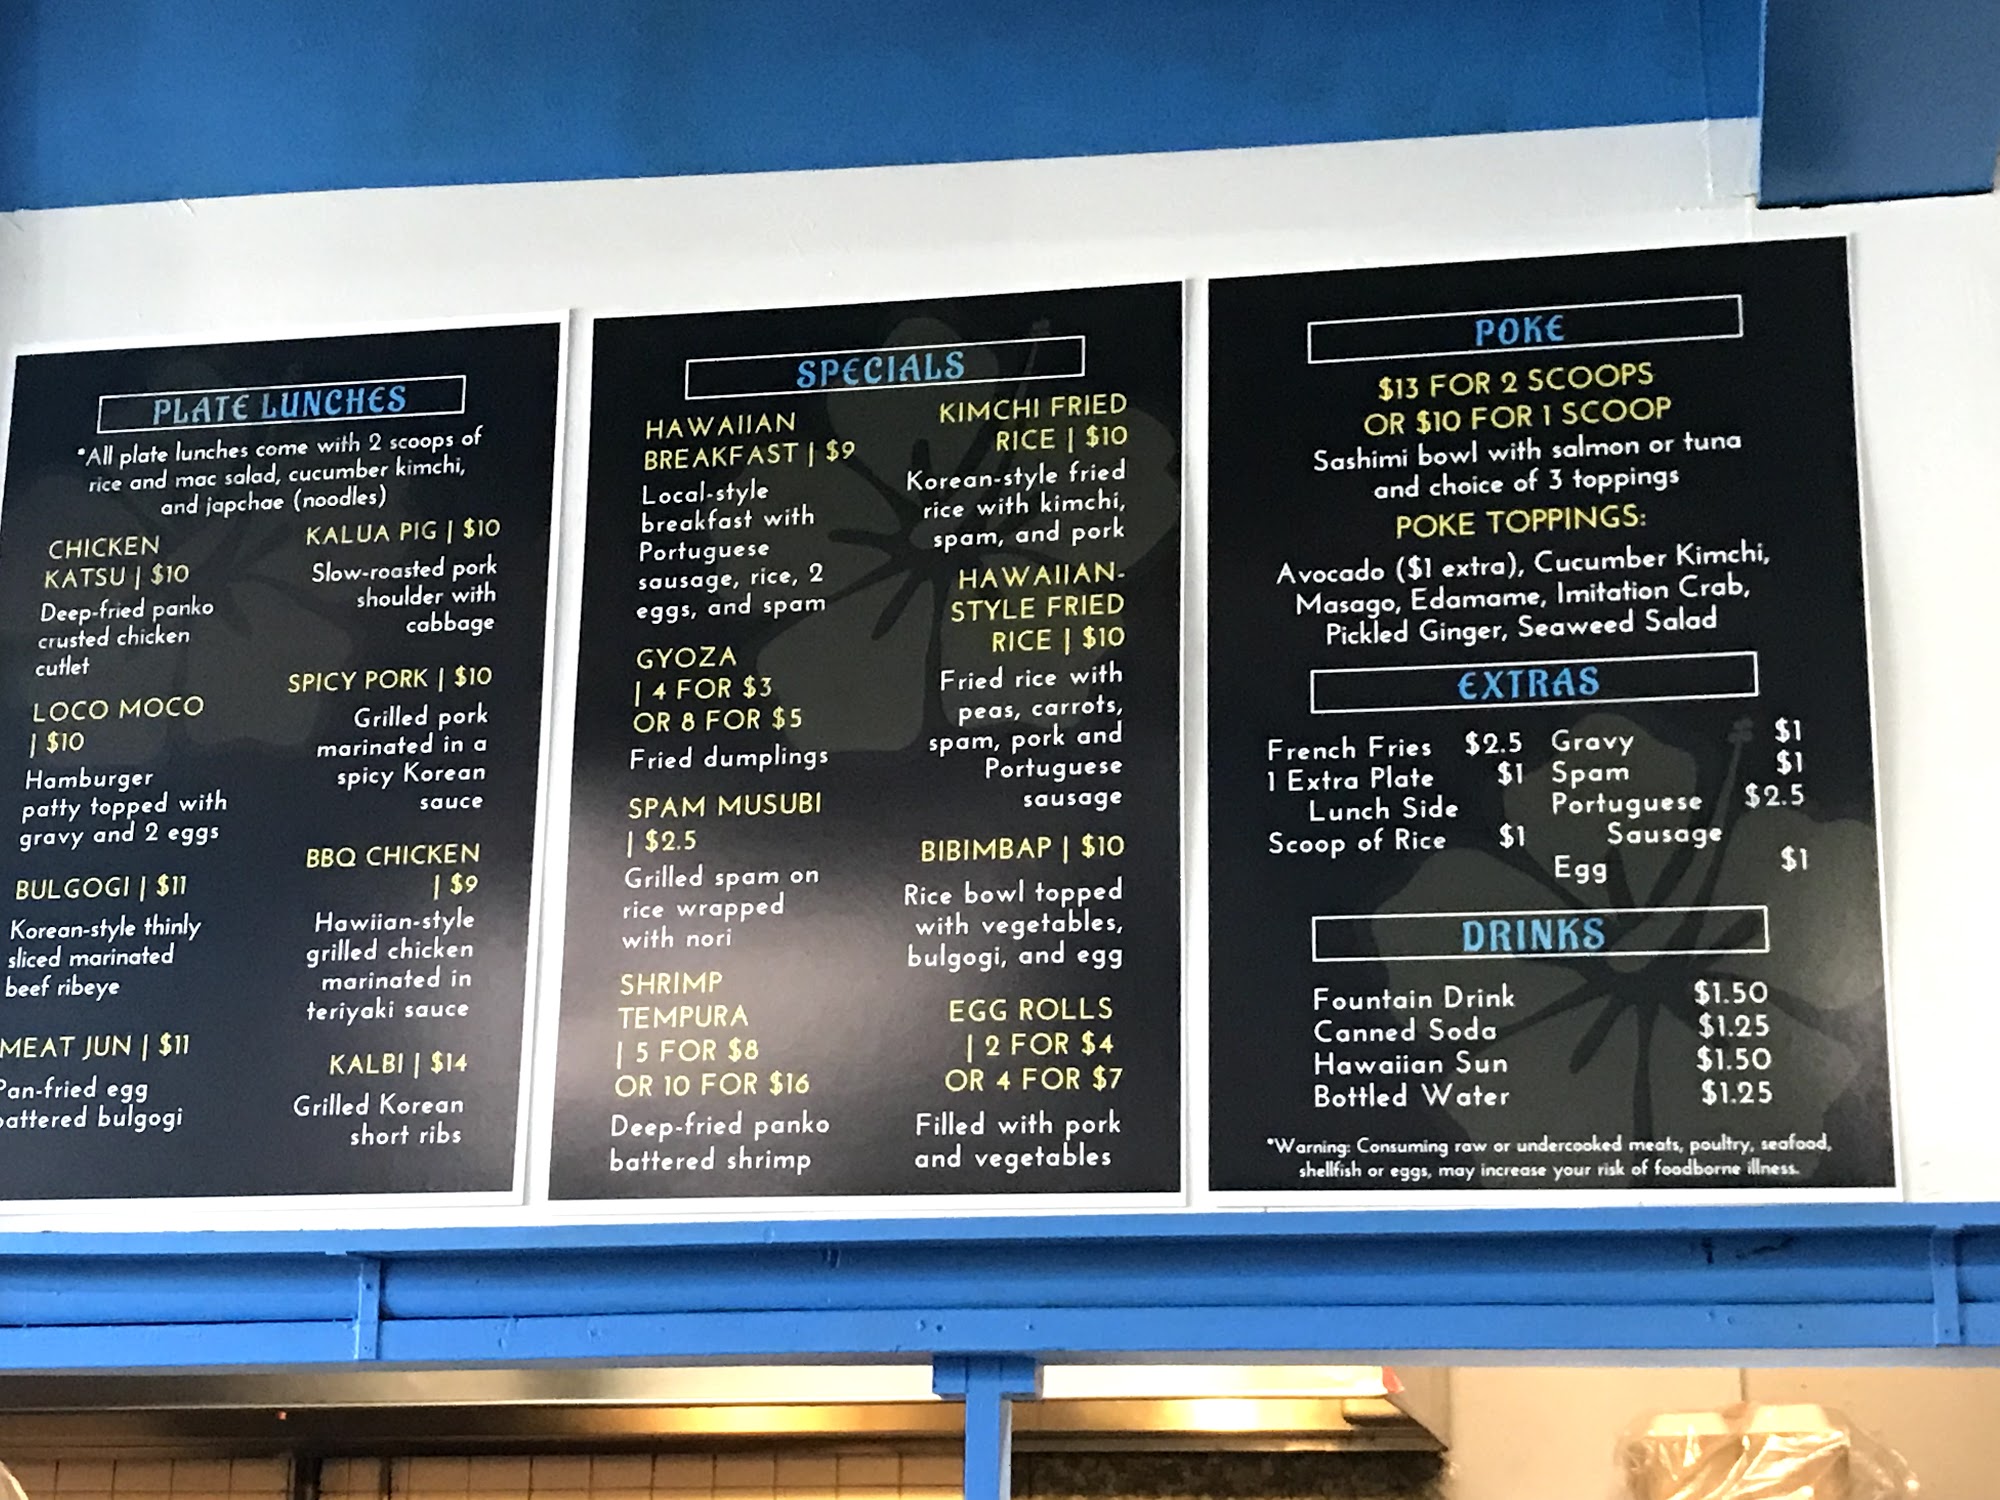 PLATE LUNCHES
*All plate lunches come with 2 scoops of
rice and mac salad, cucumber kimchi,
and japchae (noodles)
CHICKEN
KATSU | $10
Deep-fried panko
crusted chicken
cutlet
LOCO MOCO
| $10
Hamburger
patty topped with
gravy and 2 eggs
BULGOGI | $11
Korean-style thinly
sliced marinated
beef ribeye
MEAT JUN | $11
Pan-fried egg
battered bulgogi
KALUA PIG | $10
Slow-roasted pork
shoulder with
cabbage
SPICY PORK | $10
Grilled pork
marinated in a
spicy Korean
sauce
BBQ CHICKEN
| $9
Hawiian-style
grilled chicken
marinated in
teriyaki sauce
KALBI | $14
Grilled Korean
short ribs
SPECIALS
HAWAIIAN
BREAKFAST | $9
Local-style
breakfast with
Portuguese
sausage, rice, 2
eggs, and spam
GYOZA
| 4 FOR $3
OR 8 FOR $5
Fried dumplings
SPAM MUSUBI
| $2.5
Grilled spam on
rice wrapped
with nori
SHRIMP
TEMPURA
| 5 FOR $8
OR 10 FOR $16
Deep-fried panko
battered shrimp
KIMCHI FRIED
RICE | $10
Korean-style fried
rice with kimchi,
spam, and pork
HAWAIIAN-
STYLE FRIED
RICE | $10
Fried rice with
peas, carrots,
spam, pork and
Portuguese
sausage
BIBIMBAP | $10
Rice bowl topped
with vegetables,
bulgogi, and egg
EGG ROLLS
| 2 FOR $4
OR 4 FOR $7
Filled with pork
and vegetables
POKE
$13 FOR 2 SCOOPS
OR $10 FOR 1 SCOOP
Sashimi bowl with salmon or tuna
and choice of 3 toppings
POKE TOPPINGS:
Avocado ($1 extra), Cucumber Kimchi,
Masago, Edamame, Imitation Crab,
Pickled Ginger, Seaweed Salad
EXTRAS
French Fries $2.5
1 Extra Plate $1
Lunch Side
Scoop of Rice $1
Gravy $1
Spam $1
Portuguese $2.5
Sausage
Egg $1
DRINKS
Fountain Drink $1.50
Canned Soda $1.25
Hawaiian Sun $1.50
Bottled Water $1.25
*Warning: Consuming raw or undercooked meats, poultry, seafood,
shellfish or eggs, may increase your risk of foodborne illness.